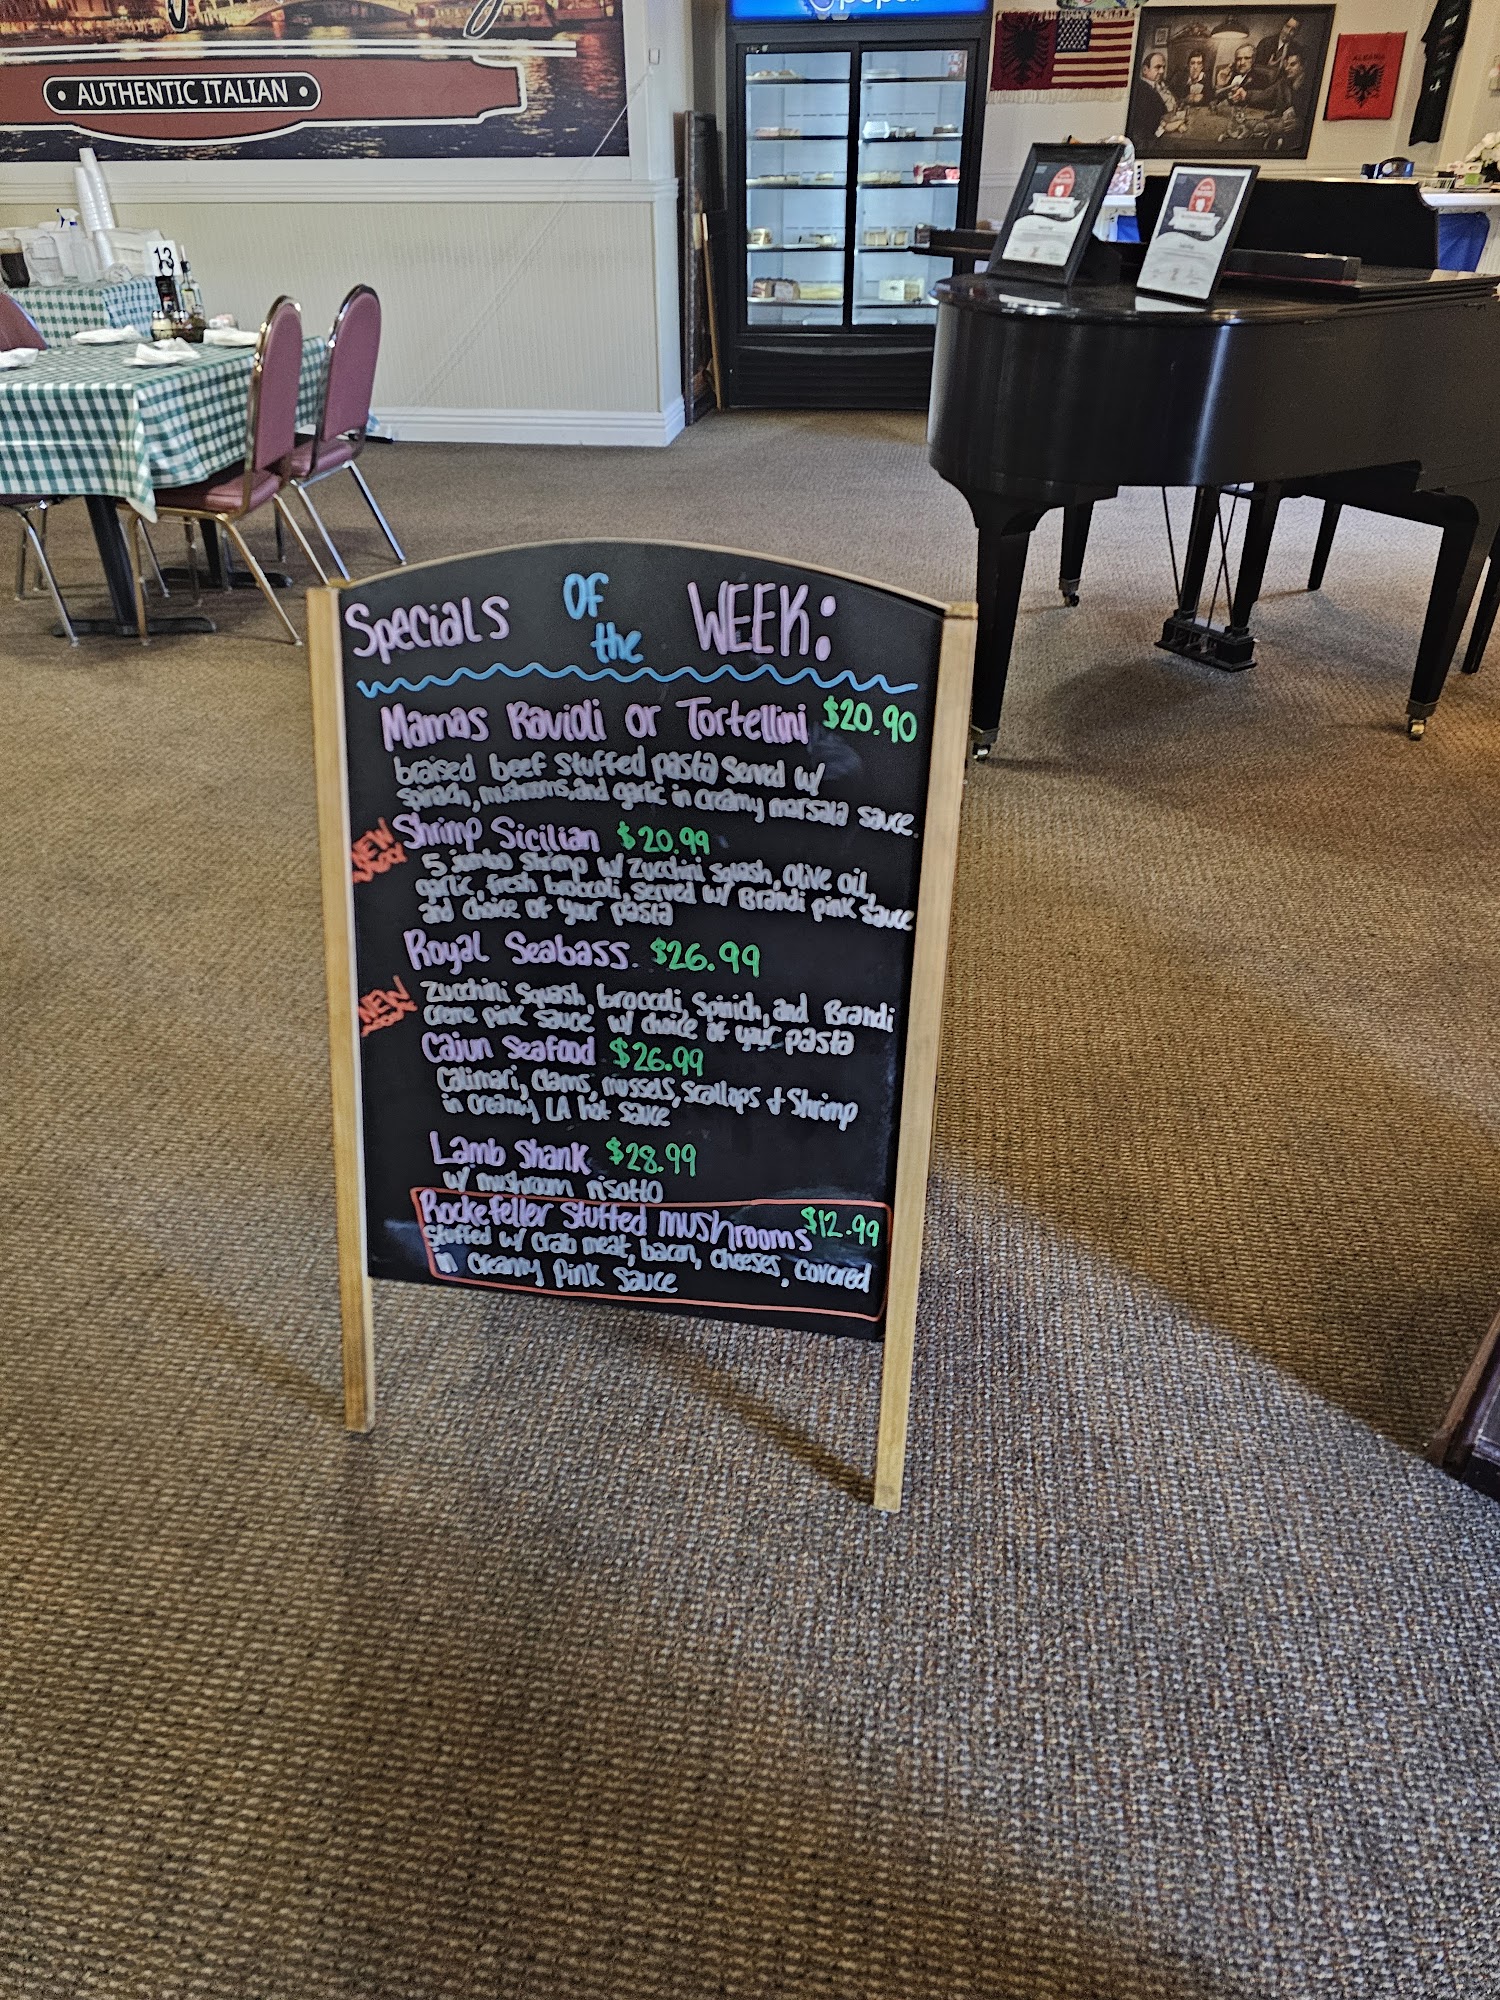 AUTHENTIC ITALIAN
ALBANIA
13
Specials OF the WEEK:
Mamas Ravioli or Tortellini $20.90
braised beef stuffed pasta served w/
spinach, mushrooms, and garlic in creamy marsala sauce.
NEW
Shrimp Sicilian $20.99
5 jumbo shrimp w/ zucchini squash, olive oil,
garlic, fresh broccoli, served w/ Brandi pink sauce
and choice of your pasta
Royal Seabass. $26.99
Zucchini squash, broccoli, Spinich, and Brandi
creme pink sauce w/ choice of your pasta
NEW
Cajun Seafood $26.99
Calimari, clams, mussels, scallops & Shrimp
in creamy LA hot sauce
Lamb Shank $28.99
w/ mushroom risotto
Rockefeller Stuffed mushrooms $12.99
Stuffed w/ crab meat, bacon, cheeses, covered
in creamy pink sauce